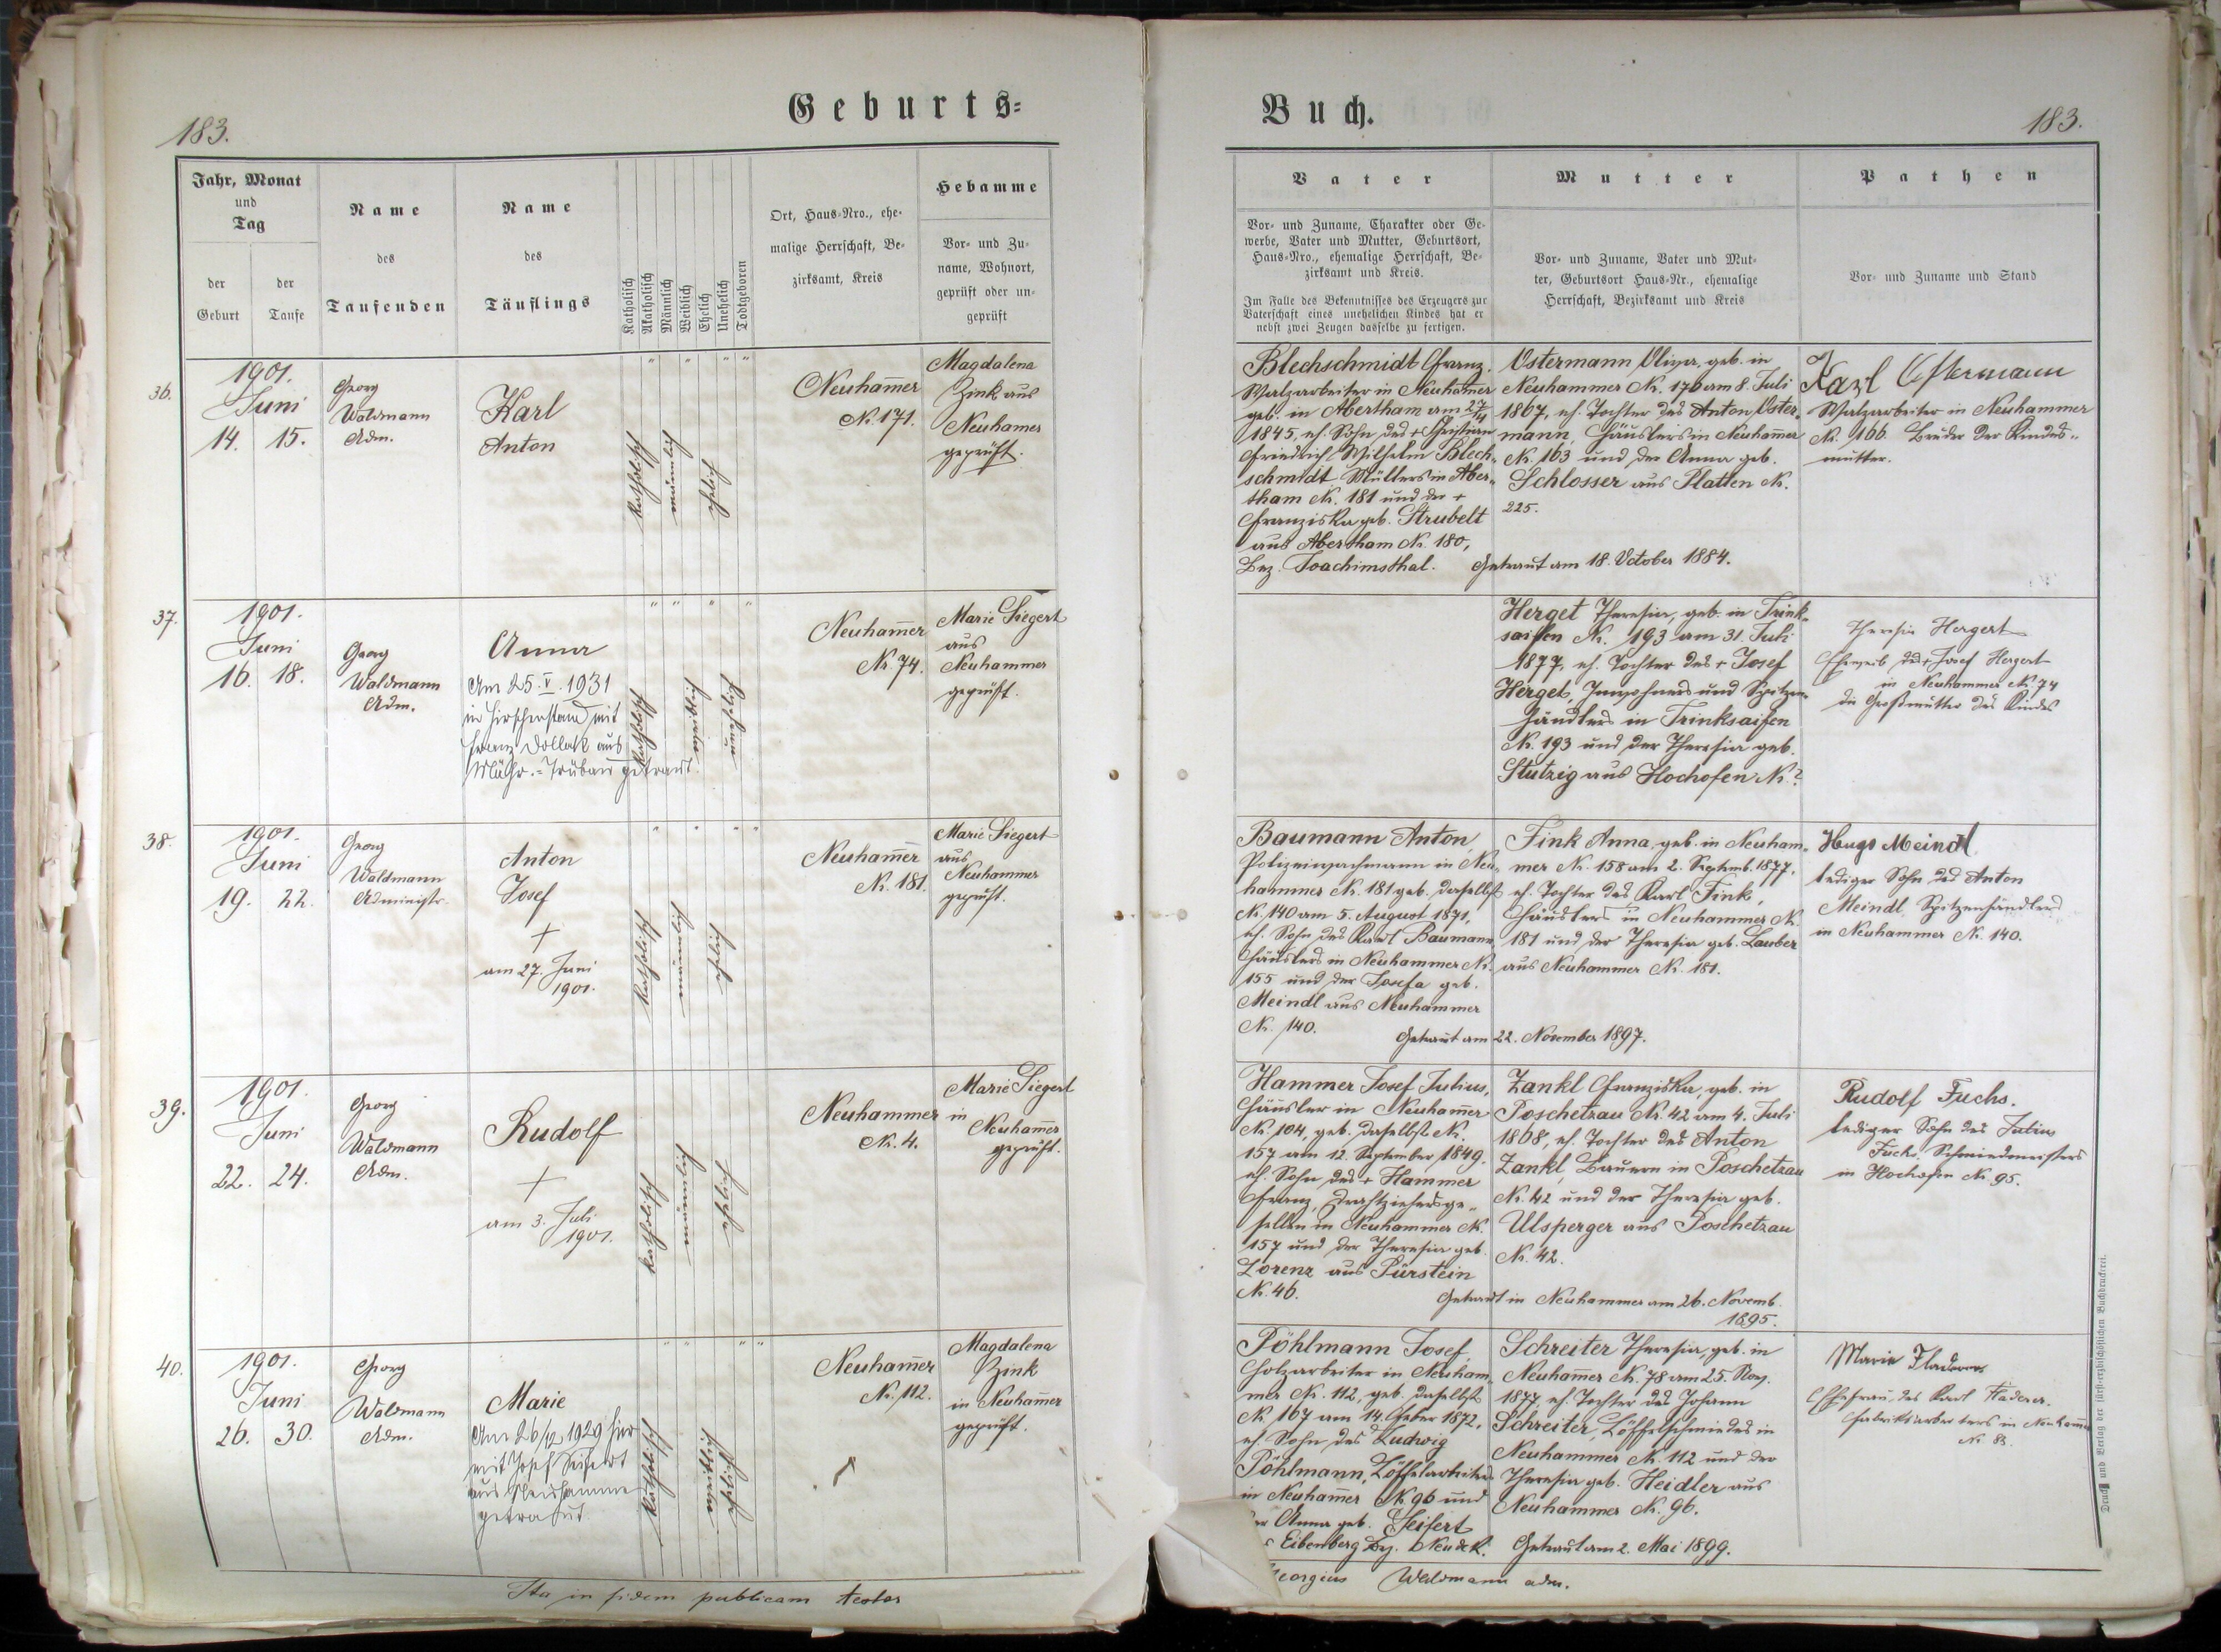 Geburts=
183.
Jahr, Monat
und
Tag
der
Geburt
der
Taufe
Name
des
Taufenden
Name
des
Täuflings
Katholisch
Akatholisch
Männlich
Weiblich
Ehelich
Unehelich
Todtgeboren
Ort, Haus-Nro., ehe-
malige Herrschaft, Be-
zirksamt, Kreis
Hebamme
Vor- und Zu-
name, Wohnort,
geprüft oder un-
geprüft
36.
1901.
Juni
14. 15.
Georg
Waldmann
Adm.
Karl
Anton
katholisch
männlich
ehelich
Neuham̅er
Nr. 171.
Magdalena
Zink aus
Neuhamer
geprüft.
37.
1901.
Juni
16. 18.
Georg
Waldmann
Adm.
Anna
Am 25. V. 1931
in Hirschenstand mit
Franz Dollak aus
Mähr.-Trübau getraut.
katholisch
weiblich
unehelich
Neuham̅er
Nr. 74.
Marie Siegert
aus
Neuhammer
geprüft.
38.
1901.
Juni
19. 22.
Georg
Waldmann
Administr.
Anton
Josef
+
am 27. Juni
1901.
katholisch
männlich
ehelich
Neuham̅er
Nr. 181.
Marie Siegert
aus
Neuhammer
geprüft.
39.
1901.
Juni
22. 24.
Georg
Waldmann
Adm.
Rudolf
+
am 3. Juli
1901.
katholisch
männlich
ehelich
Neuhammer
Nr. 4.
Marie Siegert
in
Neuham̅er
geprüft.
40.
1901.
Juni
26. 30.
Georg
Waldmann
Adm.
Marie
Am 26/12 1929 hier
mit Josef Seifert
aus Neuhammer
getraut.
katholisch
weiblich
ehelich
Neuham̅er
Nr. 112.
Magdalena
Zink
in Neuham̅er
geprüft.
Ita in fidem publicam testor
Buch.
183.
Vater
Vor- und Zuname, Charakter oder Ge-
werbe, Vater und Mutter, Geburtsort,
Haus-Nro., ehemalige Herrschaft, Be-
zirksamt und Kreis.
Im Falle des Bekenntnisses des Erzeugers zur
Vaterschaft eines unehelichen Kindes hat er
nebst zwei Zeugen dasselbe zu fertigen.
Mutter
Vor- und Zuname, Vater und Mut-
ter, Geburtsort Haus-Nr., ehemalige
Herrschaft, Bezirksamt und Kreis
Pathen
Vor- und Zuname und Stand
Blechschmidt Franz.
Walzarbeiter in Neuham̅er
geb. in Abertham am 27/4
1845, eh. Sohn des + Christian
Friedrich Wilhelm Blech-
schmidt Müllers in Aber-
tham Nr. 181 und der +
Franziska geb. Strubelt
aus Abertham Nr. 180,
Bez. Joachimsthal.
Ostermann Olivia, geb. in
Neuhammer Nr. 176 am 8. Juli
1867, eh. Tochter des Anton Oster-
mann, Häuslers in Neuham̅er
Nr. 163 und der Anna geb.
Schlosser aus Platten Nr.
225.
Getraut am 18. October 1884.
Karl Ostermann
Walzarbeiter in Neuhammer
Nr. 166. Bruder der Kindes-
mutter.
Herget Theresia, geb. in Trink-
saifen Nr. 193 am 31. Juli
1877, eh. Tochter des + Josef
Herget, Inwohners und Spitzen-
händlers in Trinksaifen
Nr. 193 und der Theresia geb.
Stutzig aus Hochofen Nr. ?
Theresia Hergert
Eheweib des + Josef Hergert
in Neuhammer Nr. 74
die Großmutter des Kindes
Baumann Anton,
Polizeiwachmann in Neu-
hammer Nr. 181 geb. daselbst
Nr. 140 am 5. August 1871,
eh. Sohn des Karl Baumann
Häuslers in Neuhammer Nr.
155 und der Josefa geb.
Meindl aus Neuhammer
Nr. 140.
Fink Anna, geb. in Neuham-
mer Nr. 158 am 2. Septemb. 1877,
eh. Tochter des Karl Fink,
Häuslers in Neuhammer Nr.
181 und der Theresia geb. Lauber
aus Neuhammer Nr. 181.
Getraut am 22. November 1897.
Hugo Meindl
lediger Sohn des Anton
Meindl, Spitzenhändlers
in Neuhammer Nr. 140.
Hammer Josef Julius,
Häusler in Neuham̅er
Nr. 104, geb. daselbst Nr.
157 am 12. September 1849.
eh. Sohn des + Hammer
Franz, Drahtziehersge-
sellen in Neuhammer Nr.
157 und der Theresia geb.
Lorenz aus Pürstein
Nr. 46.
Zankl Franziska, geb. in
Poschetzau Nr. 42 am 4. Juli
1868, eh. Tochter des Anton
Zankl, Bauern in Poschetzau
Nr. 42 und der Theresia geb.
Ulsperger aus Poschetzau
Nr. 42.
Getraut in Neuhammer am 26. Novemb.
1895.
Rudolf Fuchs.
lediger Sohn des Julius
Fuchs, Schmiedmeisters
in Hochofen Nr. 95.
Pöhlmann Josef,
Holzarbeiter in Neuham-
mer Nr. 112, geb. daselbst
Nr. 167 am 14. Feber 1872,
eh. Sohn des Ludwig
Pöhlmann, Löffelarbeiters
in Neuham̅er Nr. 96 und
der Anna geb. Seifert
Eibenberg Bz. Neudek.
Schreiter Theresia, geb. in
Neuham̅er Nr. 78 am 25. Nov.
1877, eh. Tochter des Johann
Schreiter, Löffelschmiedes in
Neuhammer Nr. 112 und der
Theresia geb. Heidler aus
Neuhammer Nr. 96.
Getraut am 2. Mai 1899.
Marie Fladerer
Ehefrau des Karl Fladerer.
Fabriksarbeiters in Neuham̅er
Nr. 83.
Georgius Waldmann adm.
Druck und Verlag der fürst-erzbischöflichen Buchdruckerei.